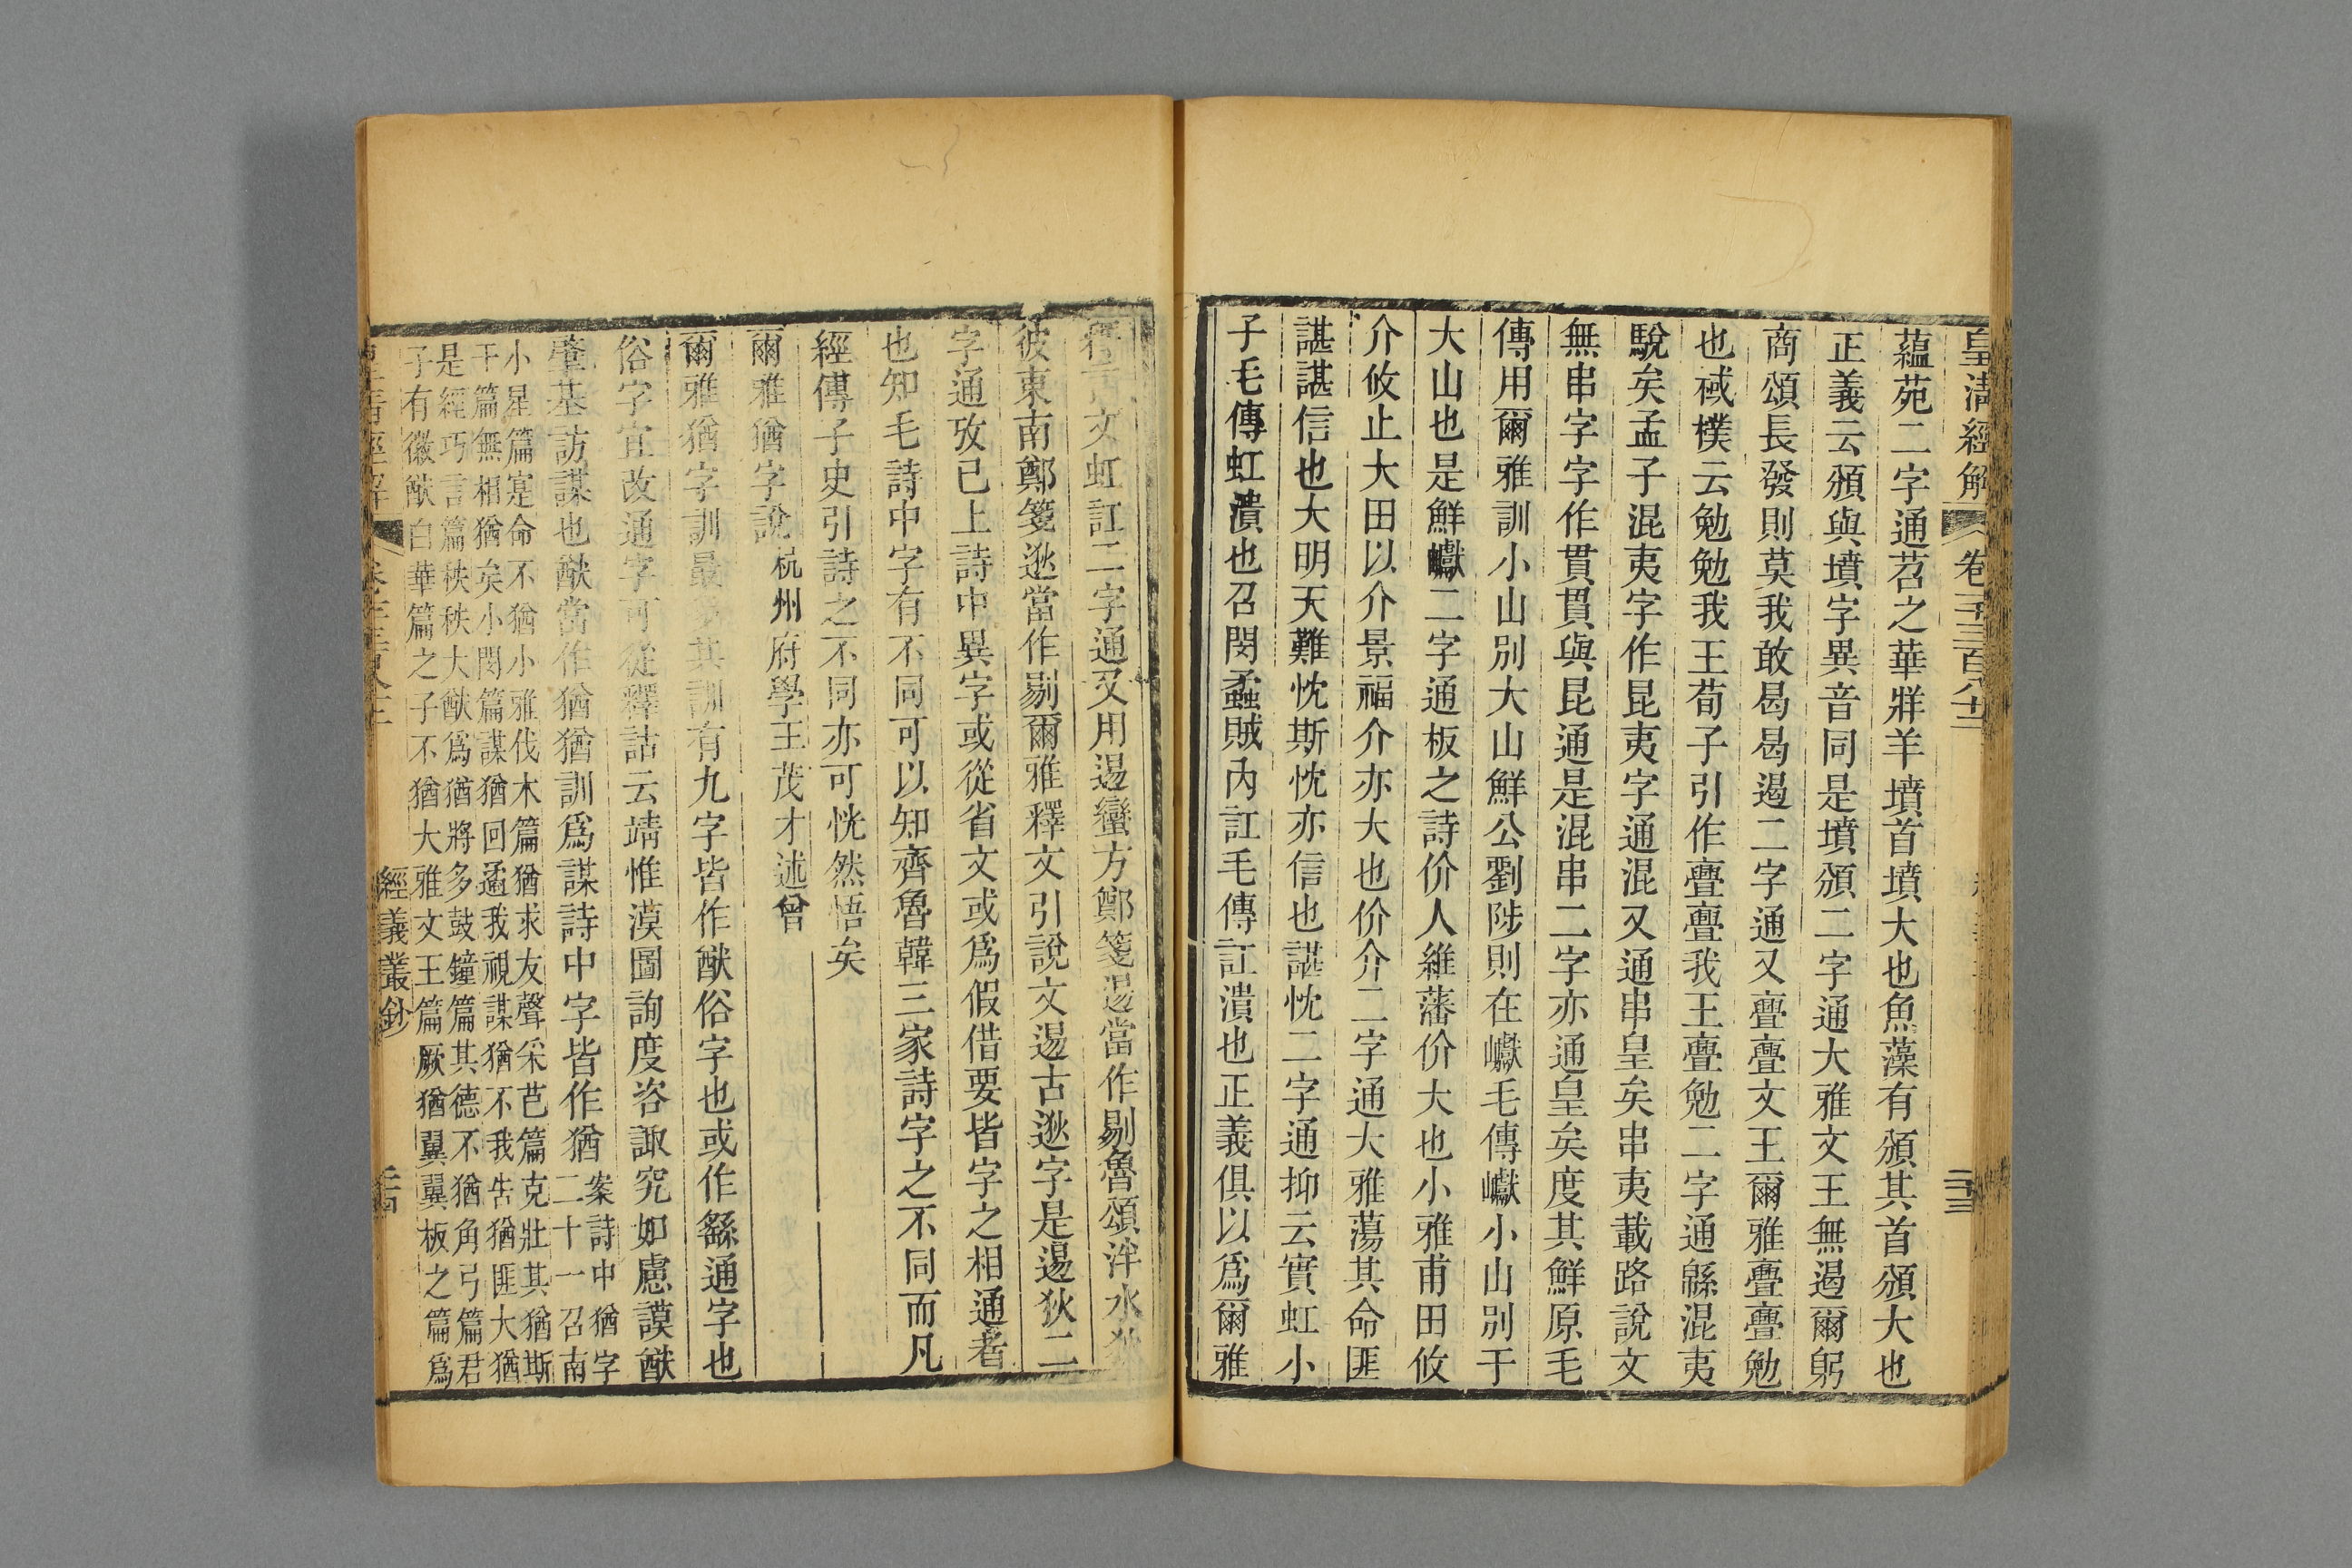 皇清經解 卷一千三百八十二
蘊苑二字通苕之華牂羊墳首墳大也魚藻有頒其首頒大也
正義云頒與墳字異音同是墳頒二字通大雅文王無遏爾躬
商頌長發則莫我敢曷曷遏二字通又亹亹文王爾雅亹亹勉
也棫樸云勉勉我王荀子引作亹亹我王亹勉二字通緜混夷
駾矣孟子混夷字作昆夷字通混又通串皇矣串夷載路說文
無串字字作貫貫與昆通是混串二字亦通皇矣度其鮮原毛
傳用爾雅訓小山別大山鮮公劉陟則在巘毛傳巘小山別于
大山也是鮮巘二字通板之詩价人維藩价大也小雅甫田攸
介攸止大田以介景福介亦大也价介二字通大雅蕩其命匪
諶諶信也大明天難忱斯忱亦信也諶忱二字通抑云實虹小
子毛傳虹潰也召閔蟊賊內訌毛傳訌潰也正義俱以爲爾雅
文虹訌二字通又用逷蠻方鄭箋逷當作剔魯頌泮水
彼東南鄭箋逖當作剔爾雅釋文引說文逷古逖字是逷狄二
字通攷已上詩中異字或從省文或爲假借要皆字之相通者
也知毛詩中字有不同可以知齊魯韓三家詩字之不同而凡
經傳子史引詩之不同亦可恍然悟矣
爾雅猶字說 杭州府學王茂才述曾
爾雅猶字訓最多其訓有九字皆作猷俗字也或作繇通字也
俗字宜改通字可從釋詁云靖惟漠圖詢度咨諏究如慮謨猷
肇基訪謀也猷當作猶猶訓爲謀詩中字皆作猶 案詩中猶字
二十一召南
小星篇寔命不猶小雅伐木篇猶求友聲采芑篇克壯其猶斯
干篇無相猶矣小閔篇謀猶回遹我視謀猶不我告猶匪大猶
是經巧言篇秩秩大猷爲猶將多鼓鐘篇其德不猶角弓篇君
子有徽猷白華篇之子不猶大雅文王篇厥猶翼翼板之篇爲
經義叢鈔